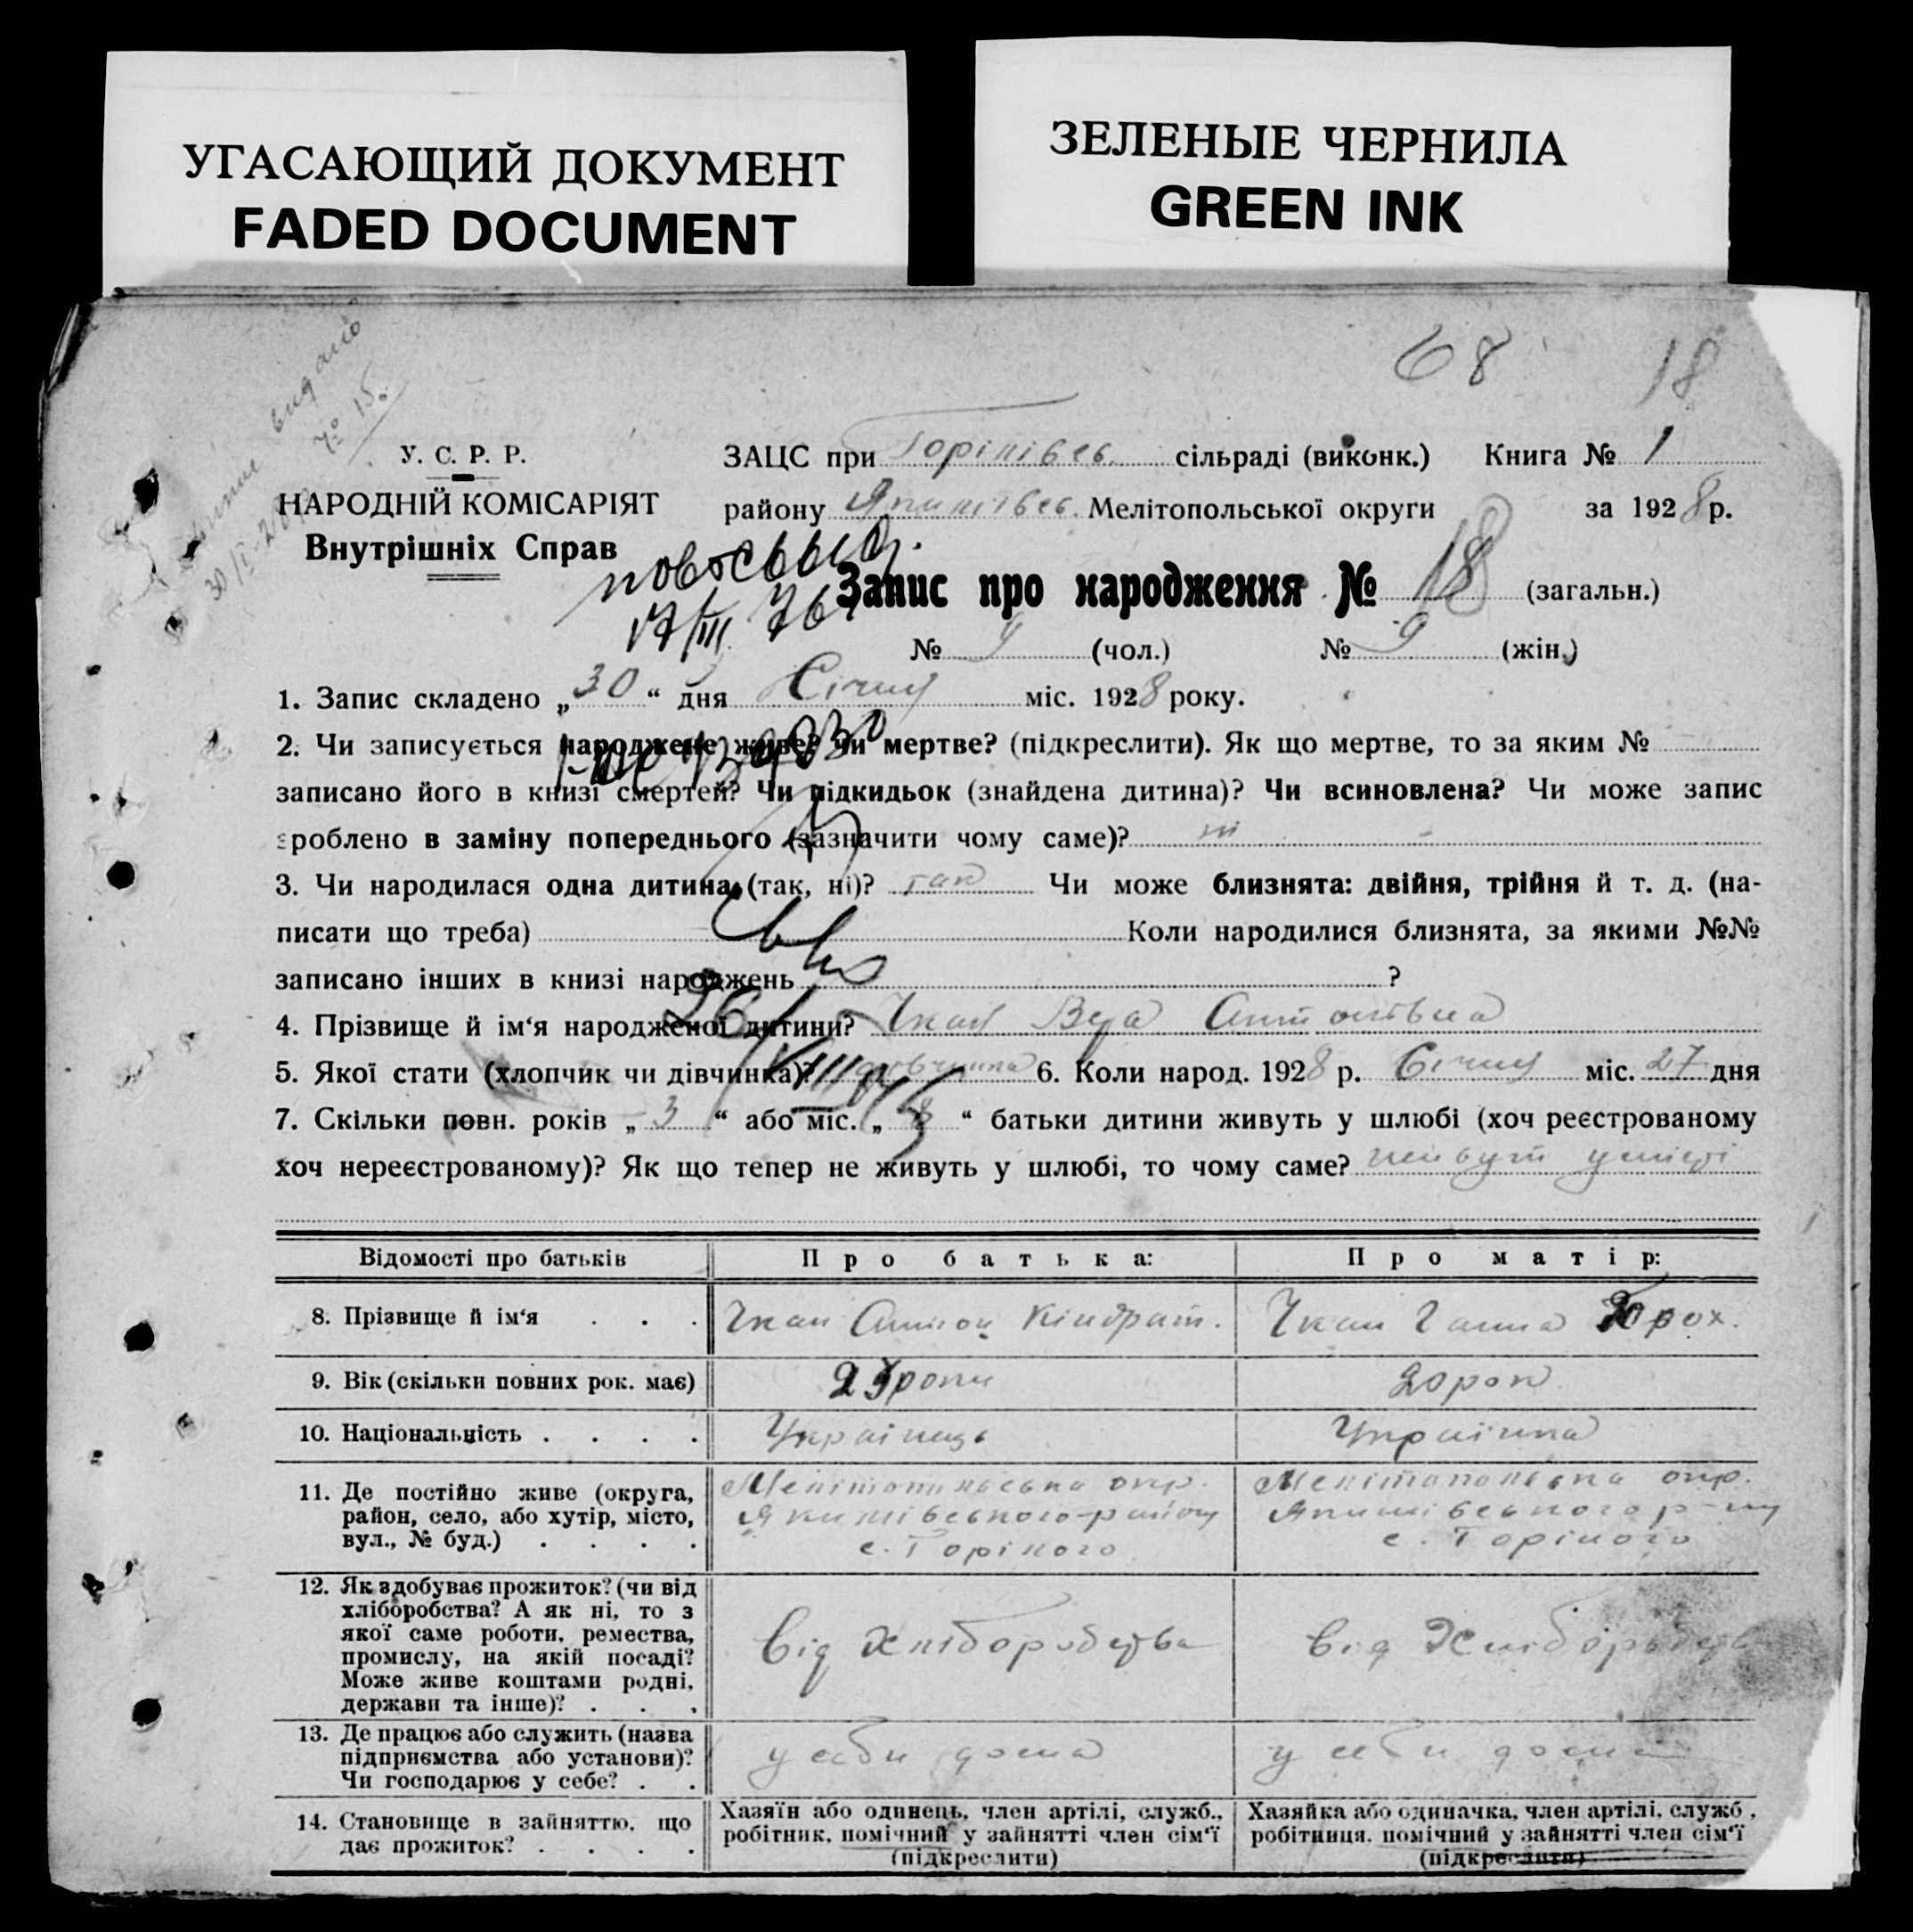 УГАСАЮЩИЙ ДОКУМЕНТ
FADED DOCUMENT
ЗЕЛЕНЫЕ ЧЕРНИЛА
GREEN INK
68 18
видано
№ 15.
У. С. Р. Р.
НАРОДНІЙ КОМІСАРІЯТ
Внутрішніх Справ
ЗАЦС при Горілівсь. сільраді (виконк.) Книга № 1
району Якимівсь. Мелітопольської округи за 1928 р.
17/III 76
Запис про народження № 18 (загальн.)
№ 9 (чол.) № 9 (жін.)
1. Запис складено „30“ дня Січня міс. 1928 року.
2. Чи записується народжене живе? чи мертве? (підкреслити). Як що мертве, то за яким №
записано його в книзі смертей? Чи підкидьок (знайдена дитина)? Чи всиновлена? Чи може запис
зроблено в заміну попереднього (зазначити чому саме)? ні
3. Чи народилася одна дитина, (так, ні)? так Чи може близнята: двійня, трійня й т. д. (на-
писати що треба) Коли народилися близнята, за якими №№
записано інших в книзі народжень ?
4. Прізвище й ім‘я народженої дитини? Чкан Вера Антоновна
5. Якої стати (хлопчик чи дівчинка)? дівчинка 6. Коли народ. 1928 р. Січня міс. 27 дня
7. Скільки повн. років „3“ або міс. „8“ батьки дитини живуть у шлюбі (хоч реєстрованому
хоч нереєстрованому)? Як що тепер не живуть у шлюбі, то чому саме? живут
Відомості про батьків Про батька: Про матір:
8. Прізвище й ім‘я . . . Чкан Антон Кіндрат. Чкан Ганна Юрох.
9. Вік (скільки повних рок. має) роки 20 рок
10. Національність . . . . Українець Українка
11. Де постійно живе (округа, Мелітопольська окр. Мелітопольська окр.
район, село, або хутір, місто, Якимівського району Якимівського р-ну
вул., № буд.) . . . . с. Горілого с. Горілого
12. Як здобуває прожиток? (чи від
хліборобства? А як ні, то з
якої саме роботи, ремества, від Хліборобства від Хліборобств
промислу, на якій посаді?
Може живе коштами родні,
держави та інше)? . . .
13. Де працює або служить (назва
підприємства або установи)? у себи дома у себи дома
Чи господарює у себе? . .
14. Становище в зайняттю, що Хазяїн або одинець, член артілі, служб., Хазяйка або одиначка, член артілі, служб.,
дає прожиток? . . . . робітник, помічний у зайнятті член сім‘ї робітниця, помічний у зайнятті член сім‘ї
(підкреслити) (підкреслити)